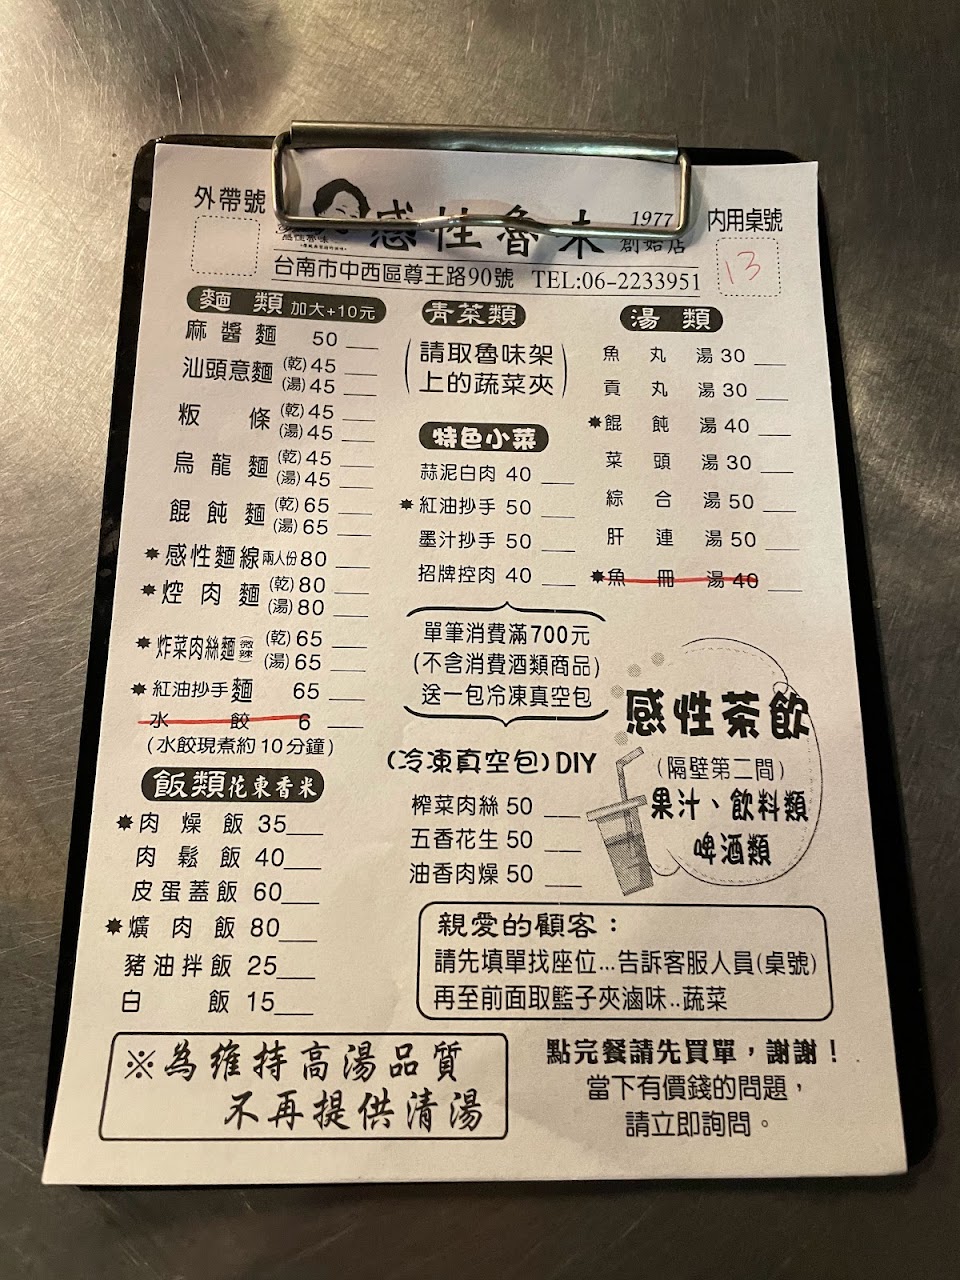 外帶號
感性魯味
1977
創始店
內用桌號
13
台南市中西區尊王路90號 TEL:06-2233951
麵類 加大+10元
麻醬麵 50
汕頭意麵 (乾)45
(湯)45
粄條 (乾)45
(湯)45
烏龍麵 (乾)45
(湯)45
餛飩麵 (乾)65
(湯)65
✹感性麵線兩人份80
✹焢肉麵 (乾)80
(湯)80
✹炸菜肉絲麵(微辣) (乾)65
(湯)65
✹紅油抄手麵 65
水餃 6
(水餃現煮約10分鐘)
飯類 花東香米
✹肉燥飯 35
肉鬆飯 40
皮蛋蓋飯 60
✹爌肉飯 80
豬油拌飯 25
白飯 15
青菜類
(請取魯味架
上的蔬菜夾)
特色小菜
蒜泥白肉 40
✹紅油抄手 50
墨汁抄手 50
招牌控肉 40
單筆消費滿700元
(不含消費酒類商品)
送一包冷凍真空包
(冷凍真空包)DIY
榨菜肉絲 50
五香花生 50
油香肉燥 50
湯類
魚丸湯 30
貢丸湯 30
✹餛飩湯 40
菜頭湯 30
綜合湯 50
肝連湯 50
✹魚冊湯 40
感性茶飲
(隔壁第二間)
果汁、飲料類
啤酒類
親愛的顧客：
請先填單找座位...告訴客服人員(桌號)
再至前面取籃子夾滷味..蔬菜
※為維持高湯品質
不再提供清湯
點完餐請先買單，謝謝！
當下有價錢的問題，
請立即詢問。